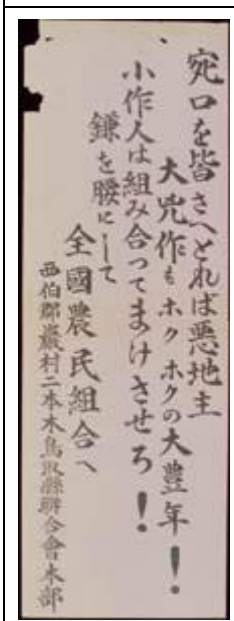 宛口を皆さへとれば悪地主
大兇作もホクホクの大豊年！
小作人は組み合つてまけさせろ！
鎌を腰にして
全國農民組合へ
西伯郡巌村二本木鳥取縣聯合會本部